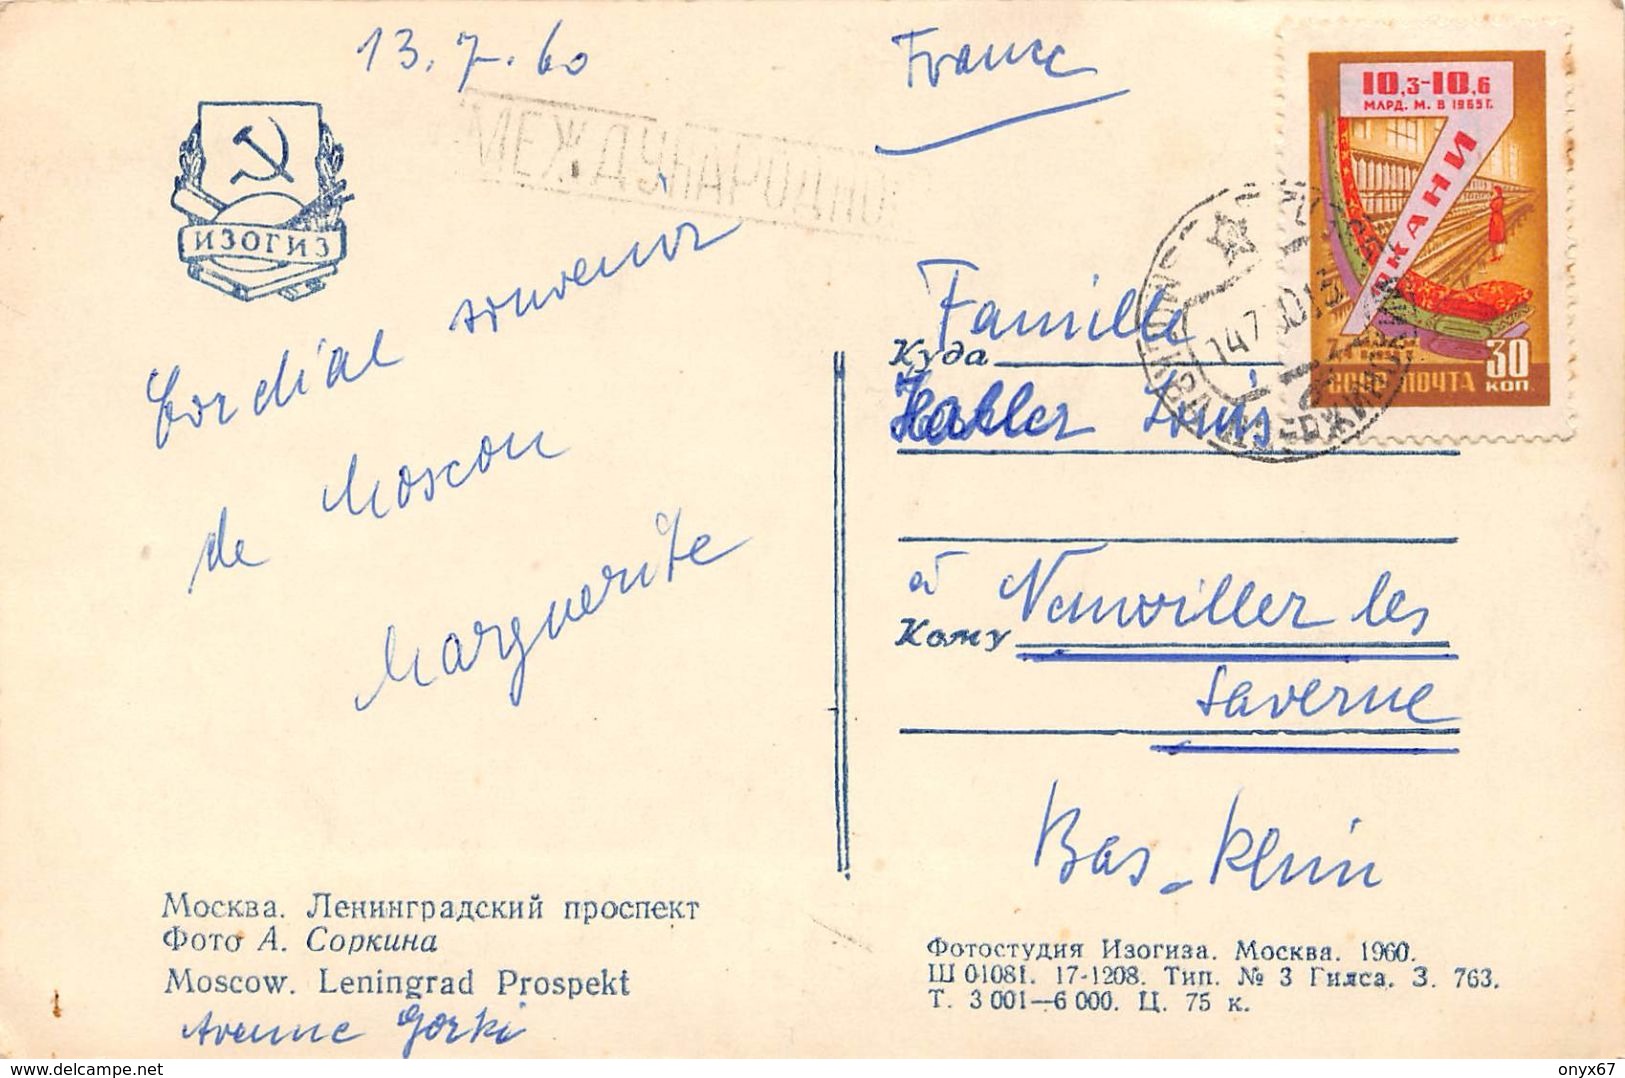 13.7.60
France
МЕЖДУНАРОДНО
ИЗОГИЗ
10,3-10,6
МЛРД. М. В 1965 Г.
ТКАНИ
30
КОП.
ПОЧТА
Cordial souvenir
de Moscou
Marguerite
Famille
Куда
Haller Louis
à Neuwiller les
Кому
Saverne
Bas-Rhin
Москва. Ленинградский проспект
Фото А. Соркина
Moscow. Leningrad Prospekt
Avenue Gorki
Фотостудия Изогиза. Москва. 1960.
Ш 01081. 17-1208. Тип. № 3 Гияса. З. 763.
Т. 3 001—6 000. Ц. 75 к.
delcampe.net
onyx67